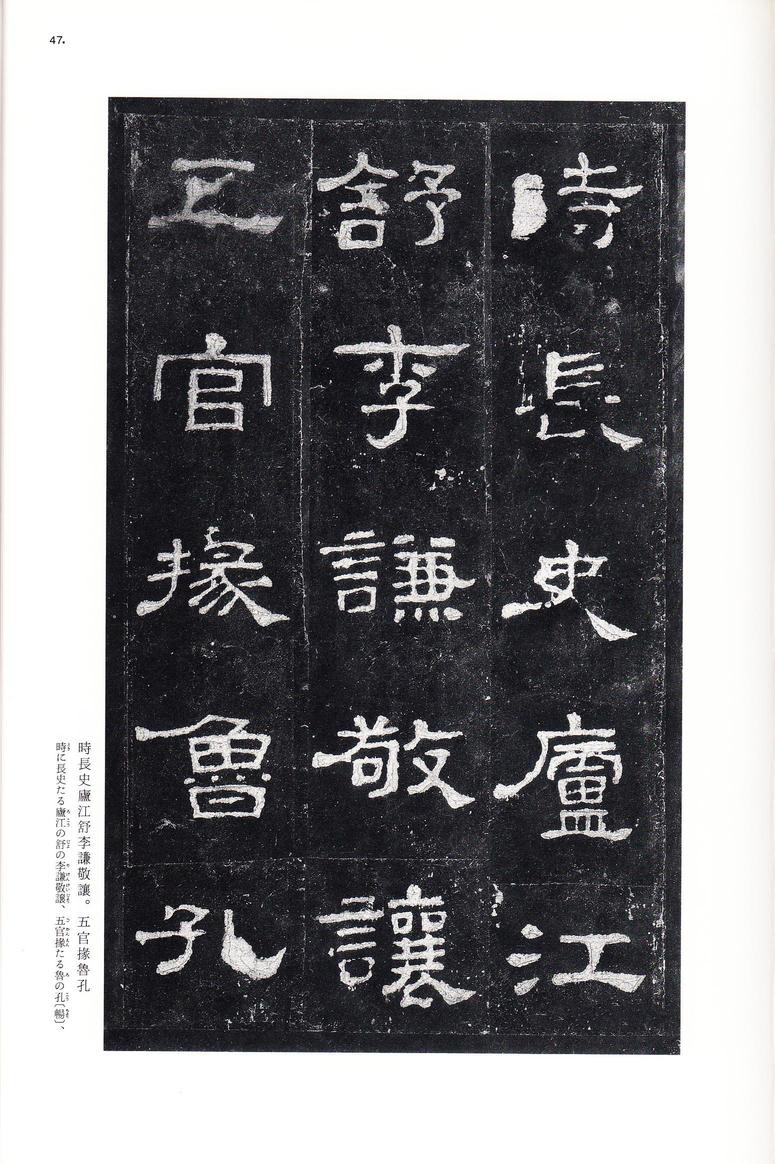 47.
時長史廬江
舒李謙敬讓
五官掾魯孔
時長史廬江舒李謙敬讓。五官掾魯孔
時に長史たる廬江の舒の李謙敬讓、五官掾たる魯の孔〔暢〕、